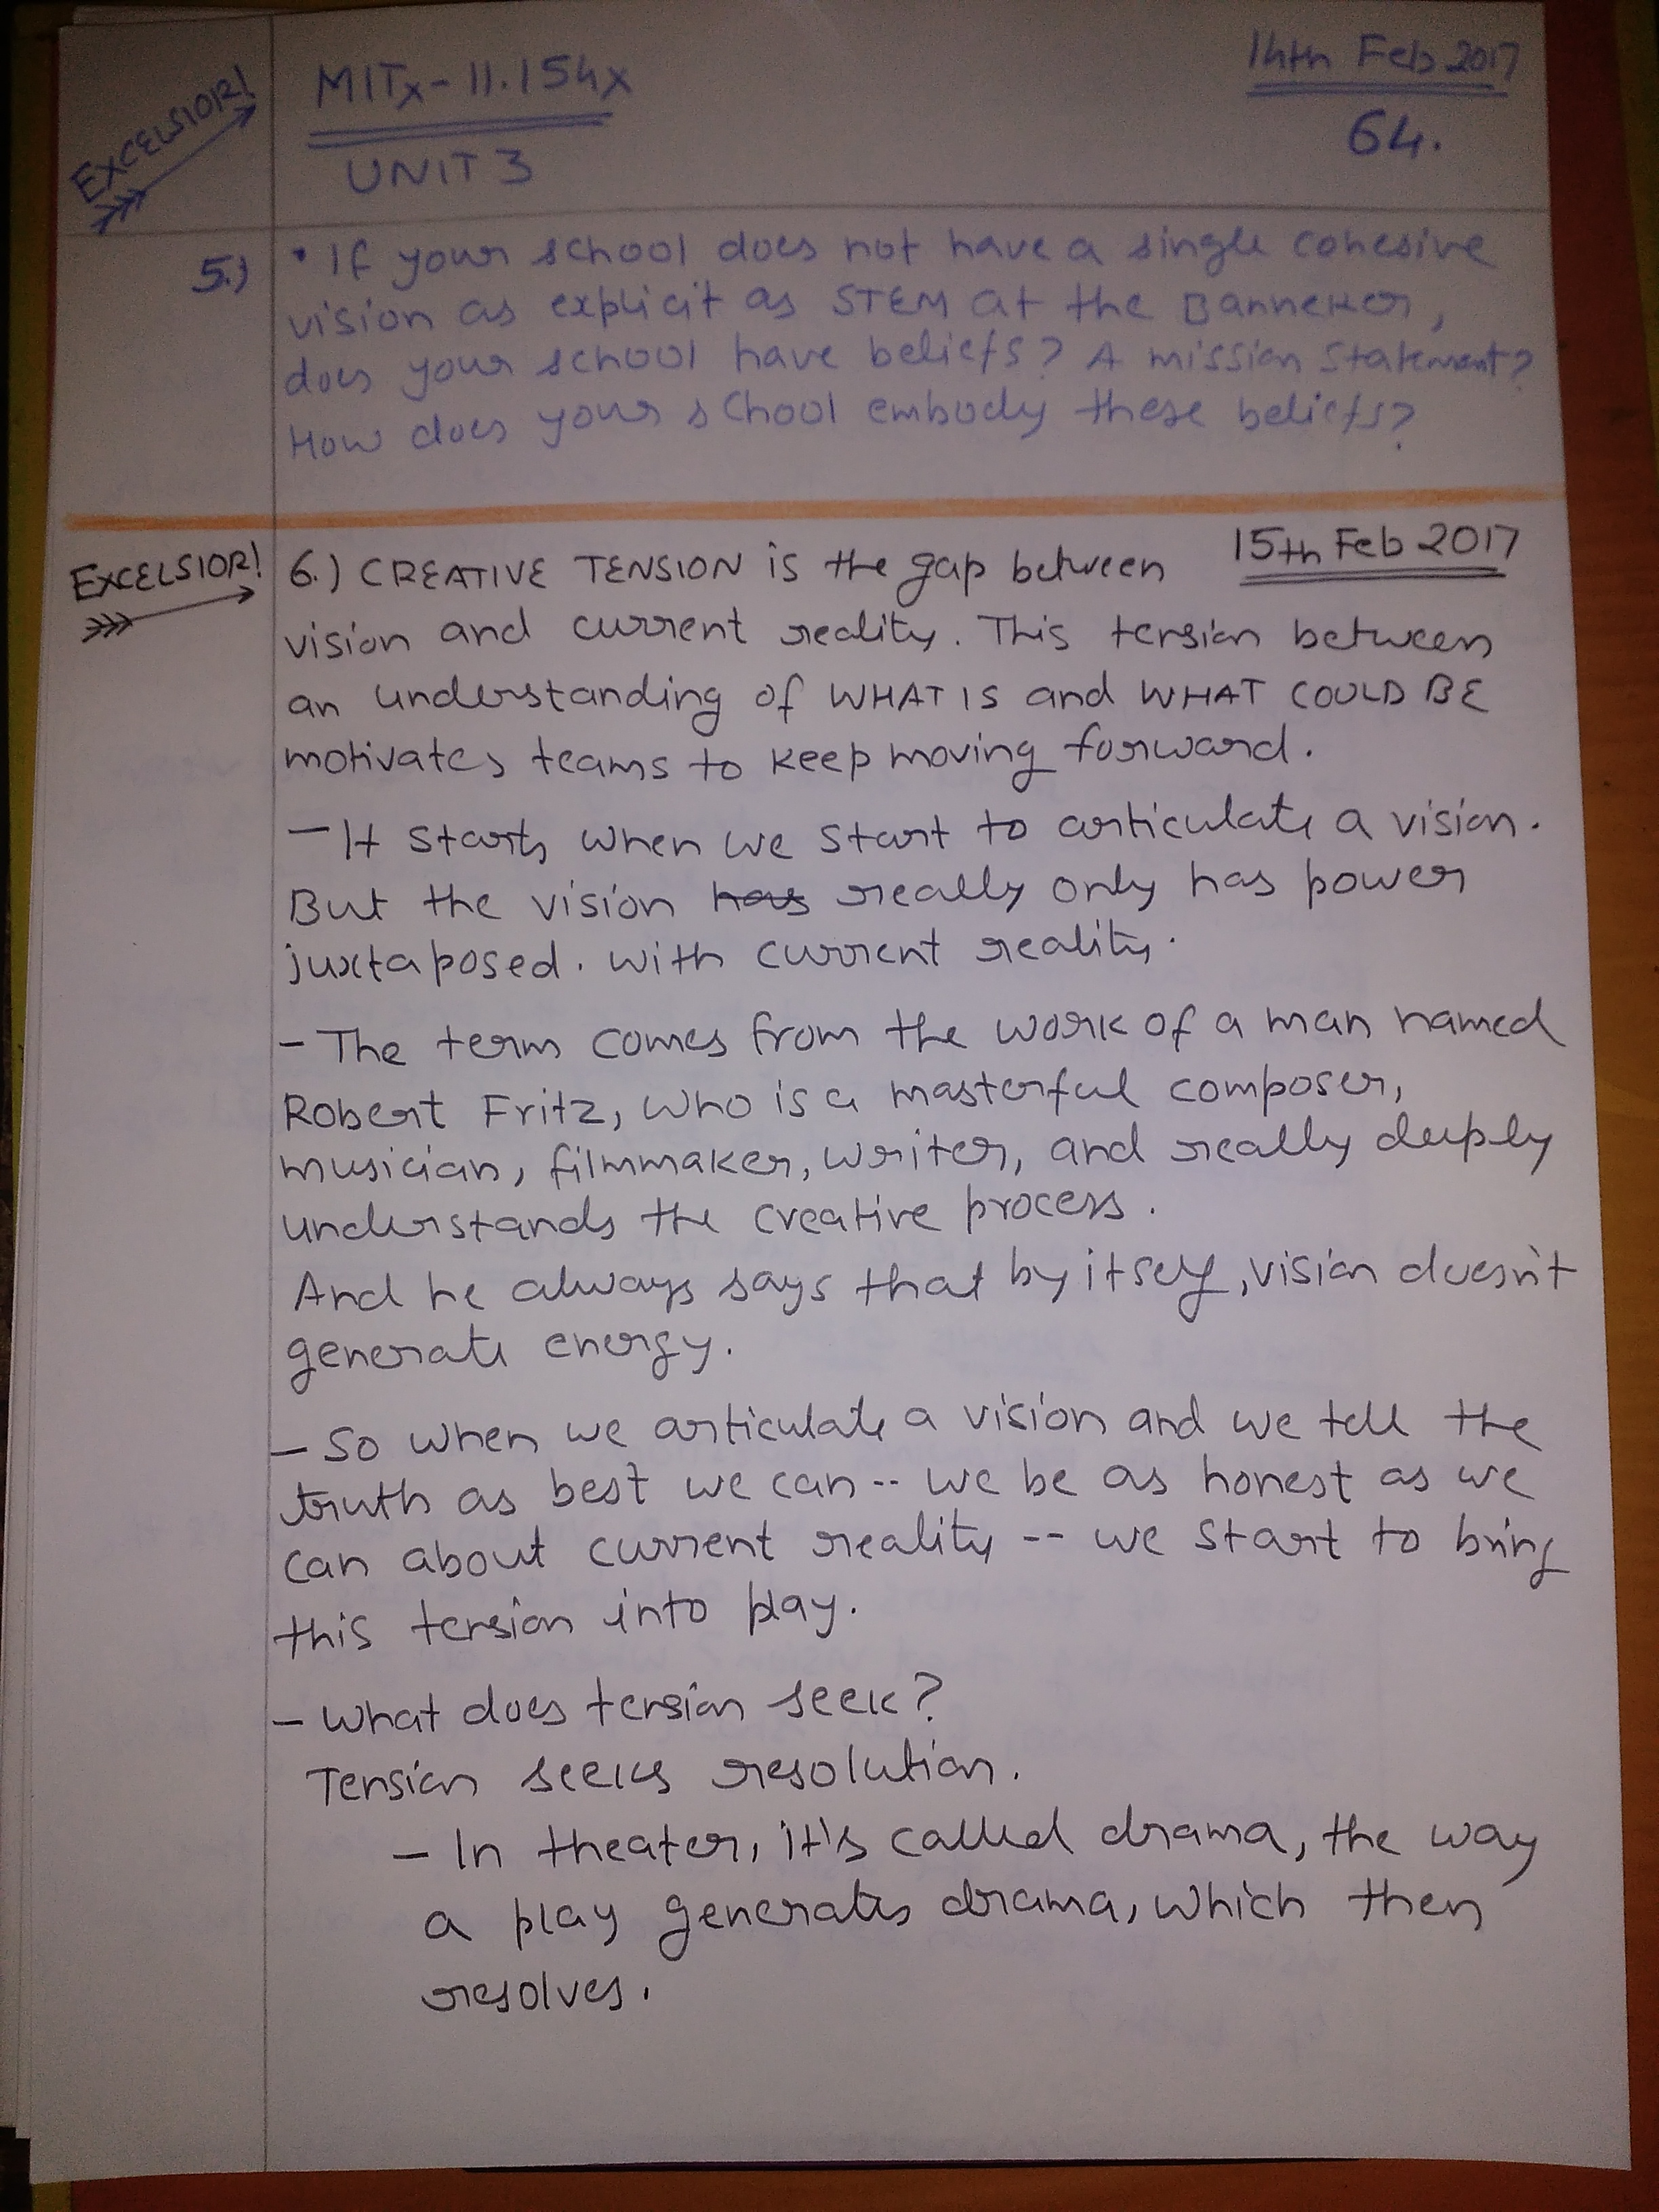 EXCELSIOR!
MITx-11.154x
UNIT 3
14th Feb 2017
64.
5.) • If your school does not have a single cohesive
vision as explicit as STEM at the Banneker,
does your school have beliefs? A mission statement?
How does your school embody these beliefs?
EXCELSIOR!
15th Feb 2017
6.) CREATIVE TENSION is the gap between
vision and current reality. This tension between
an understanding of WHAT IS and WHAT COULD BE
motivates teams to keep moving forward.
- It starts when we start to articulate a vision.
But the vision has really only has power
juxtaposed. with current reality.
- The term comes from the work of a man named
Robert Fritz, who is a masterful composer,
musician, filmmaker, writer, and really deeply
understands the creative process.
And he always says that by itself, vision doesn't
generate energy.
- So when we articulate a vision and we tell the
truth as best we can -- we be as honest as we
can about current reality -- we start to bring
this tension into play.
- What does tension seek?
Tension seeks resolution.
- In theater, it's called drama, the way
a play generates drama, which then
resolves.